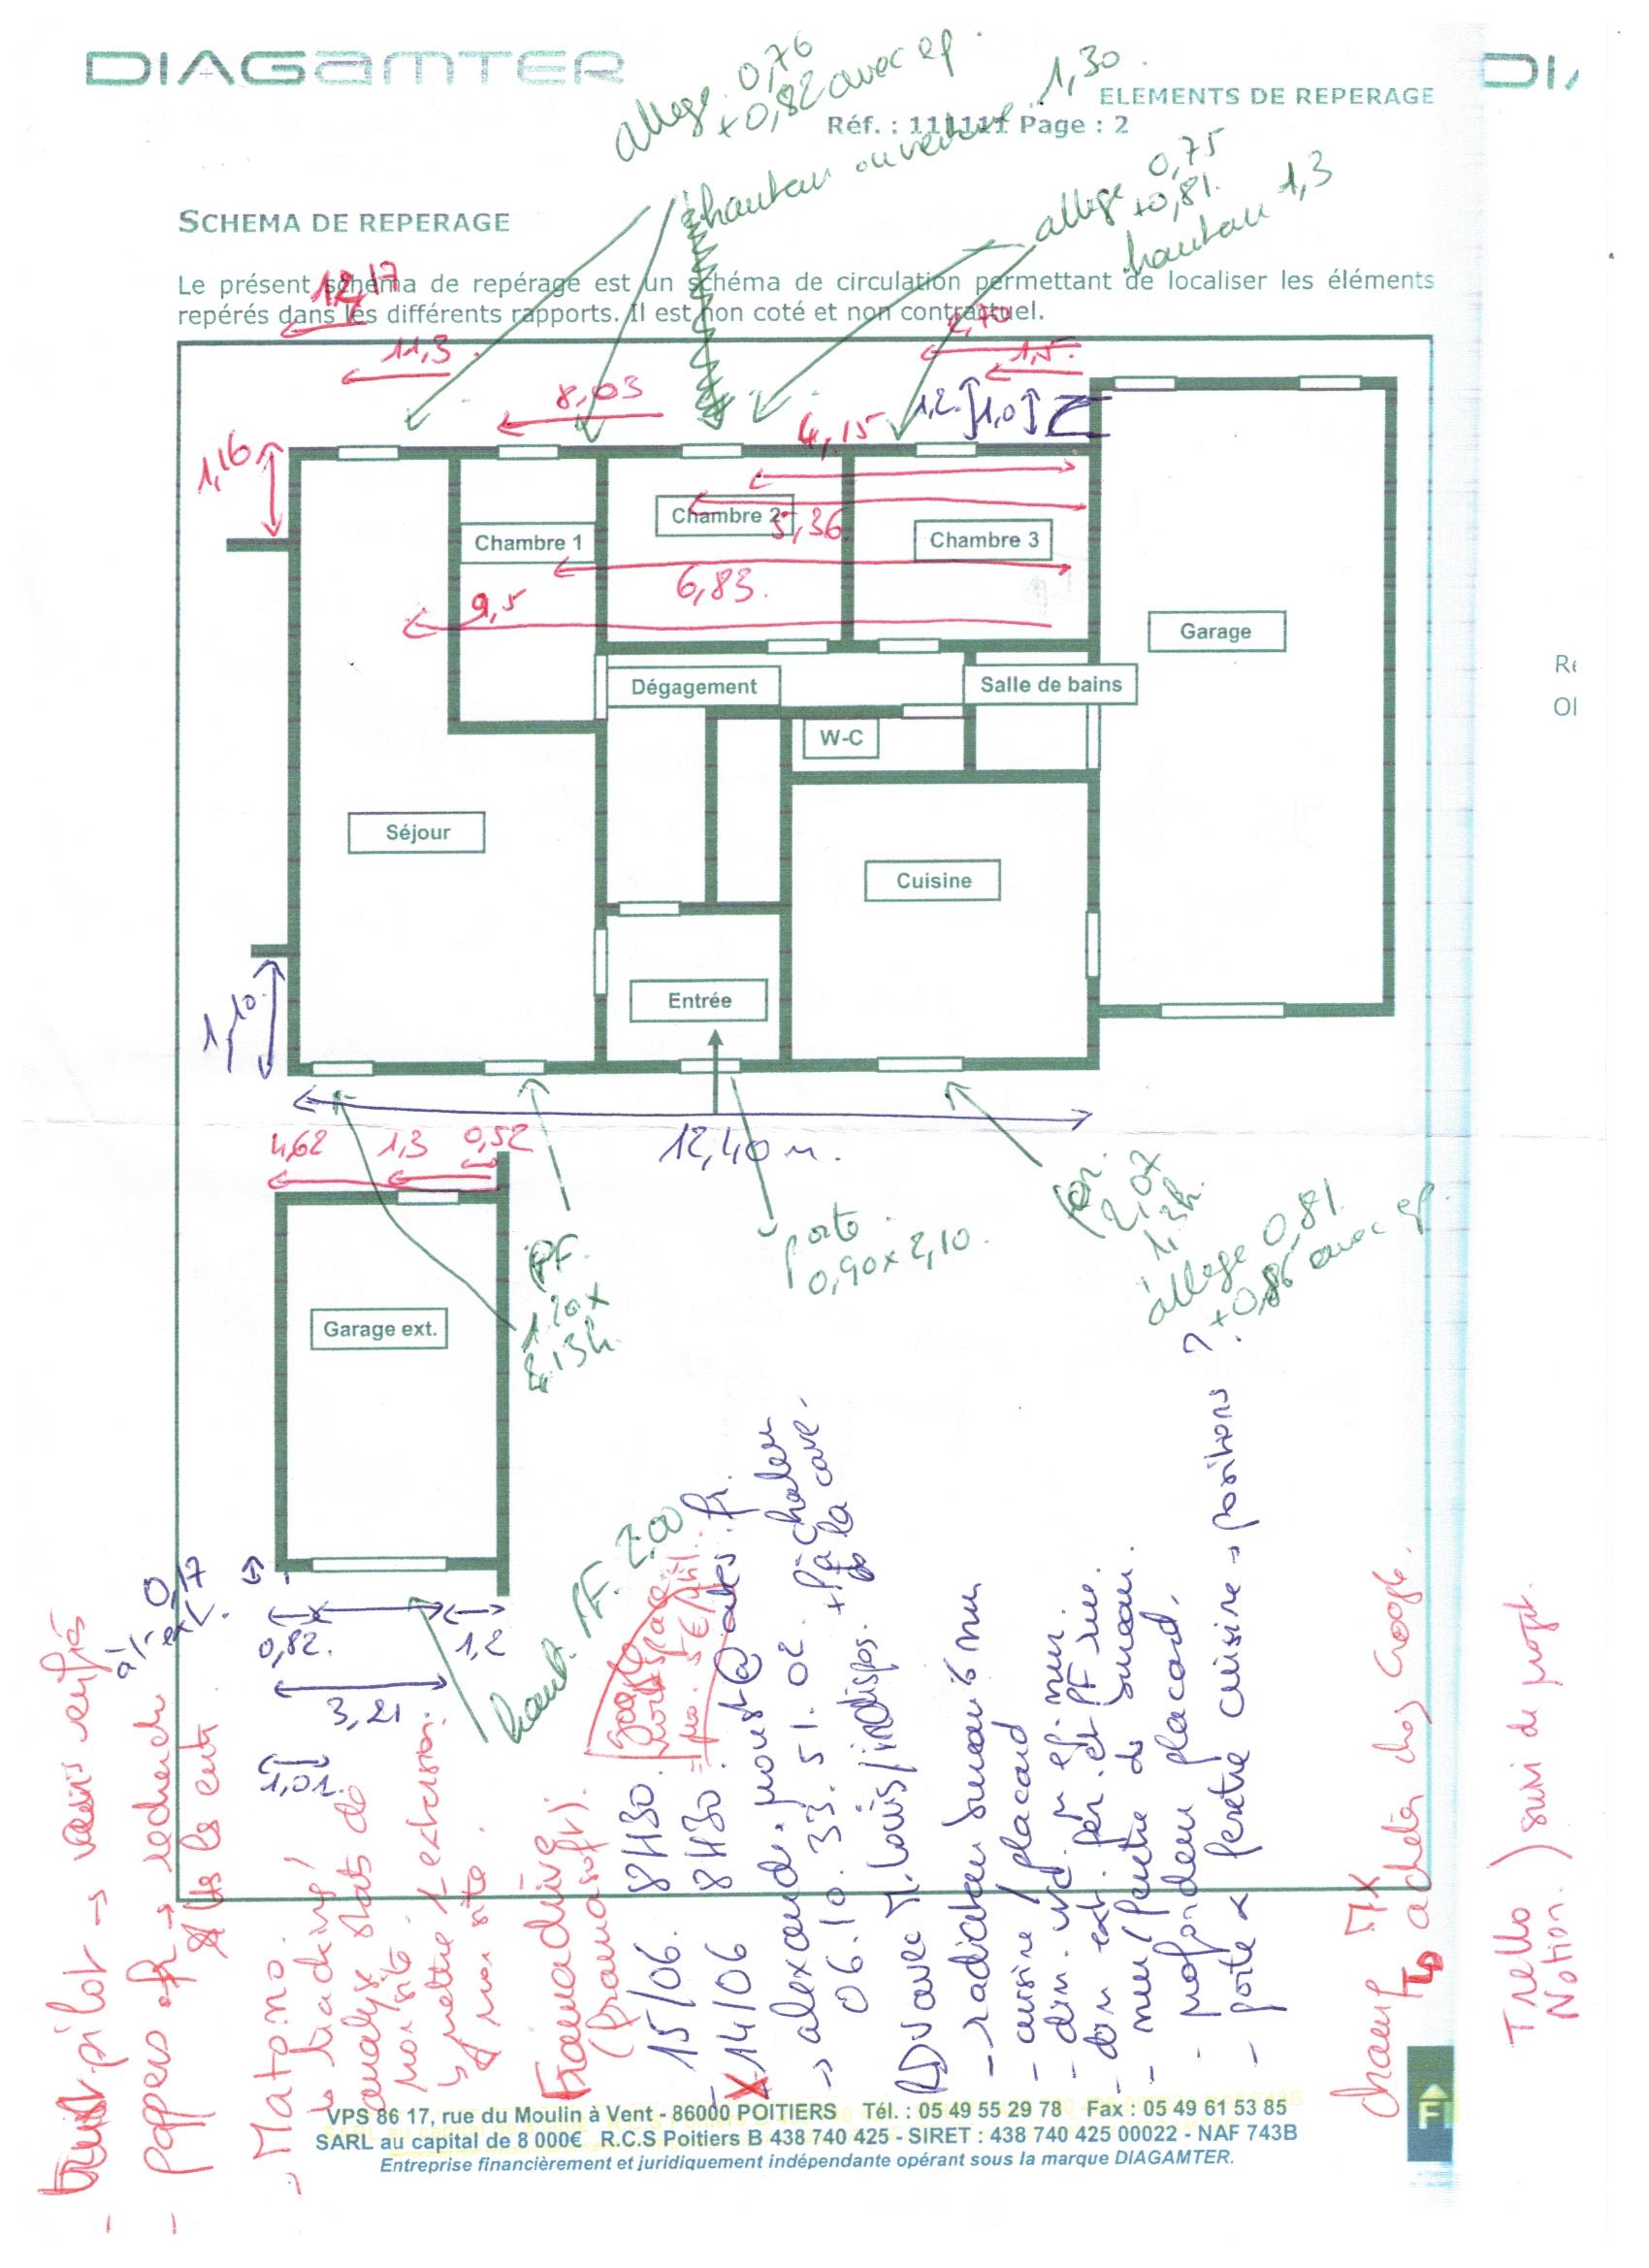 DIAGAMTER
DI
ELEMENTS DE REPERAGE
Réf. : 111111 Page : 2
allege 0,76
+0,82 avec ep.
hauteur ouverture 1,30
allege 0,75
+0,81.
hauteur 1,3
SCHEMA DE REPERAGE
Le présent schéma de repérage est un schéma de circulation permettant de localiser les éléments
repérés dans les différents rapports. Il est non coté et non contractuel.
12,17
11,3
8,03
2,70
1,5
4,15
1,2
1,0
1,16
Chambre 2
5,36
Chambre 1
Chambre 3
6,83
9,5
Garage
Dégagement
Salle de bains
W-C
Séjour
Cuisine
Entrée
1,10
12,40 m.
4,62
1,3
0,52
PF.
1,20x
2,13h.
porte
0,90x2,10.
2,07x
1,3h.
allege 0,81.
+0,86 avec ep.
Garage ext.
0,17
à l'ext.
0,82.
1,2
3,21.
1,01.
haut. PF. 2,00
pilot →
pappers
recherche
- Matomo.
analyse stats de
mon site.
↳ mettre 1 extension
mon site.
Framadrive
(framasoft).
Google
Workspace
15/06. 8H30.
X 14/06 8H30.
06.10.33.51.02.
+ PàChaleur
la cave.
RDV avec M. Louis/indispos.
- radiateur bureau 6 mu
- cuisine / placard
- dim. wc. ep. mur.
- dim ext. fen. et PF rue.
- mur / fenetre de bureau.
- profondeur placard.
- porte & fenetre cuisine → positions ?
MX
↳ acheter chez Google.
Trello ) suivi de projet.
Notion.
Re
Ol
VPS 86 17, rue du Moulin à Vent - 86000 POITIERS Tél. : 05 49 55 29 78 Fax : 05 49 61 53 85
SARL au capital de 8 000€ R.C.S Poitiers B 438 740 425 - SIRET : 438 740 425 00022 - NAF 743B
Entreprise financièrement et juridiquement indépendante opérant sous la marque DIAGAMTER.